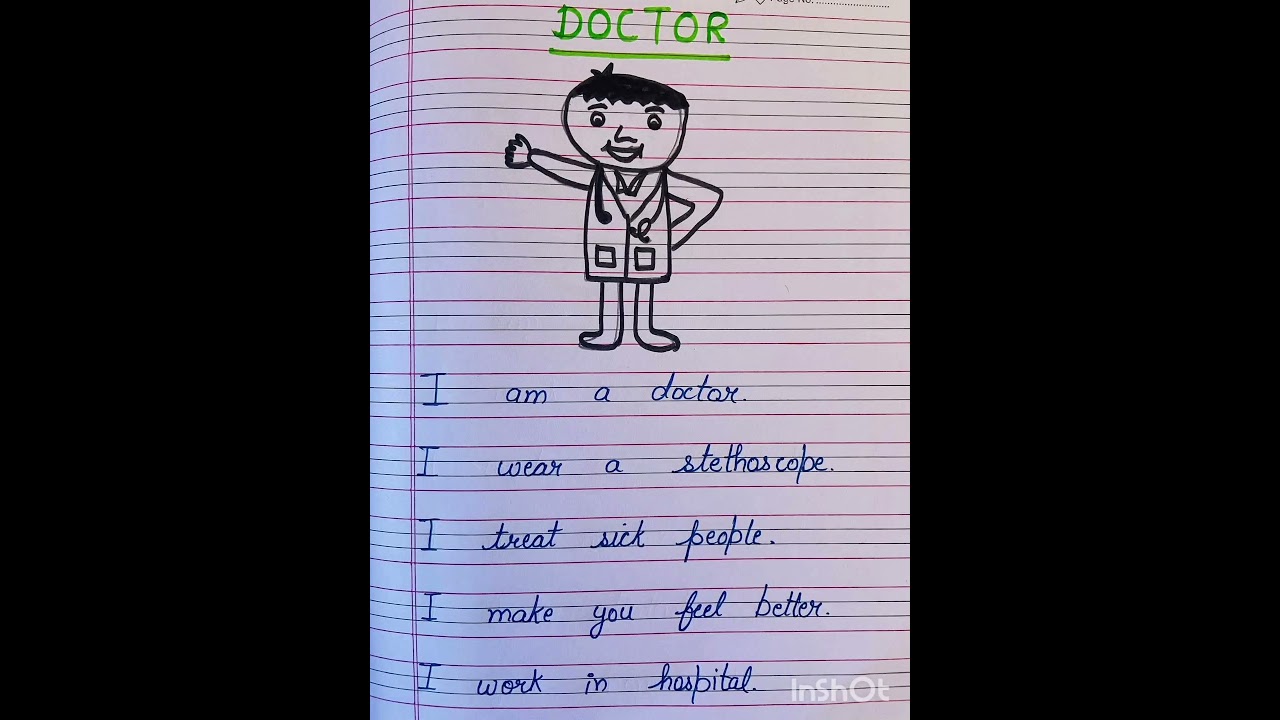 Page No. ............................
DOCTOR
I am a doctor.
I wear a stethoscope.
I treat sick people.
I make you feel better.
I work in hospital.
InShOt